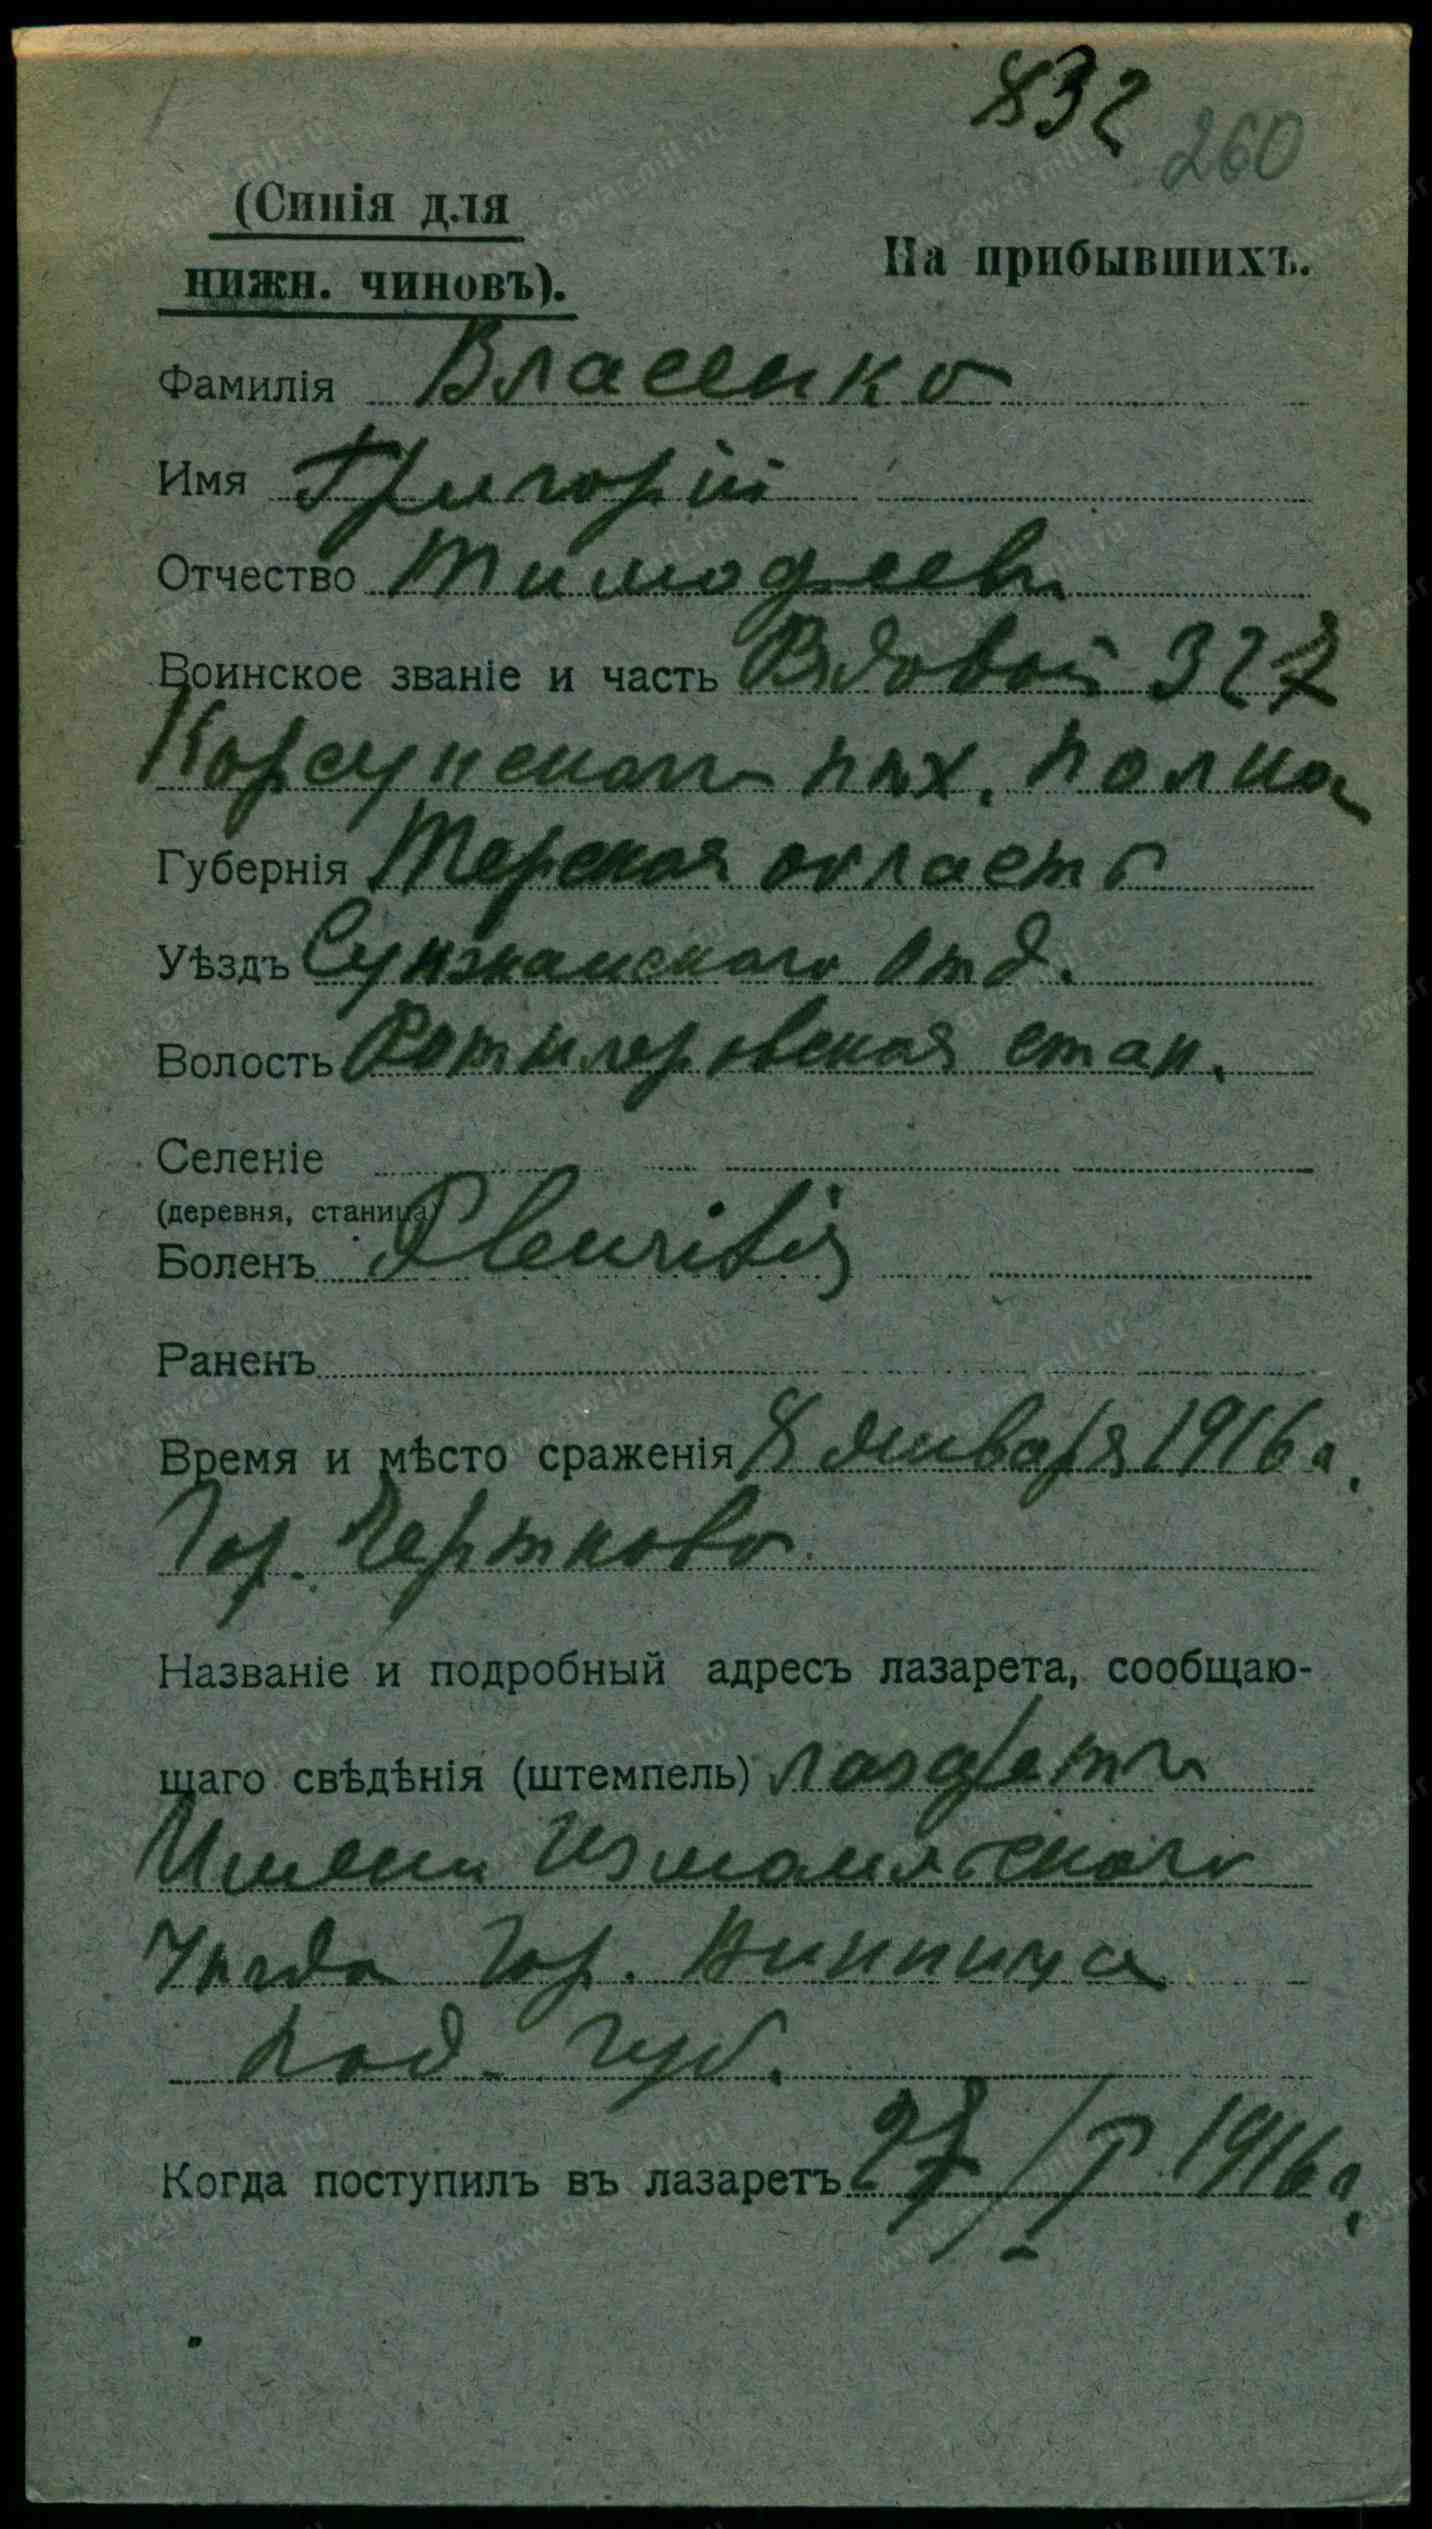 832
260
(Синія для
На прибывшихъ.
нижн. чиновъ).
Фамилія Власенко
Имя Григорій
Отчество Тимофеев
Воинское званіе и часть Рядовой 327
Корсунскаго пѣх. полка
Губернія Терская область
Уѣздъ Сунженскаго Отд.
Волость стан.
Селеніе
(деревня, станица)
Боленъ Pleuritis
Раненъ
Время и мѣсто сраженія 8 января 1916 г.
Гор. Чертково
Названіе и подробный адресъ лазарета, сообщаю-
щаго свѣдѣнія (штемпель) лазаретъ
Имени Измаильскаго
Уѣзда Гор. Винница
Под. губ.
Когда поступилъ въ лазаретъ 27/I 1916 г.